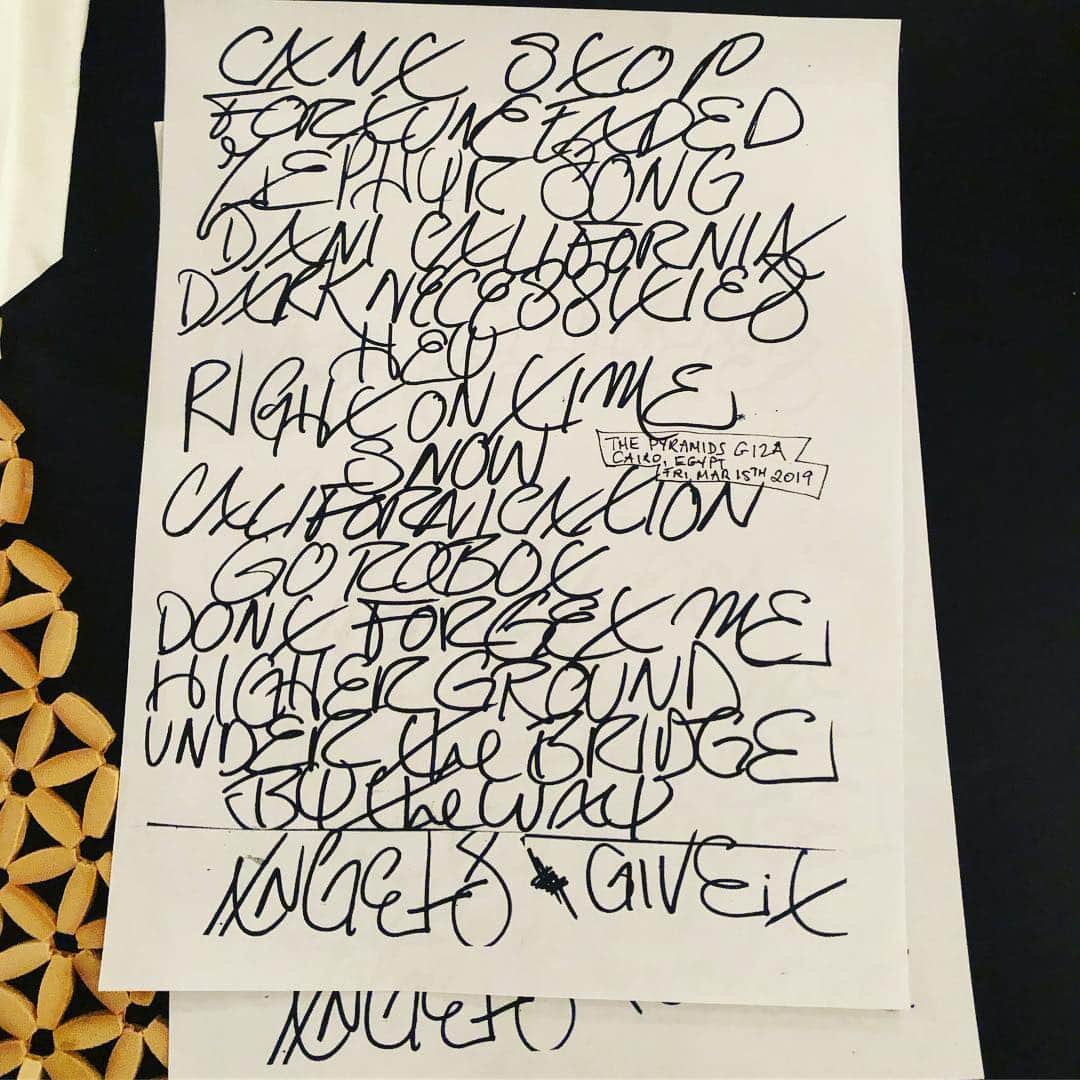 CANT STOP
FORTUNE FADED
ZEPHYR SONG
DANI CALIFORNIA
DARK NECESSITIES
HEY
RIGHT ON TIME
SNOW
THE PYRAMIDS GIZA
CAIRO, EGYPT
FRI, MAR 15TH 2019
CALIFORNICATION
GO ROBOT
DONT FORGET ME
HIGHER GROUND
UNDER the BRIDGE
BY the WAY
ANGELS GIVE iT
ANGELS